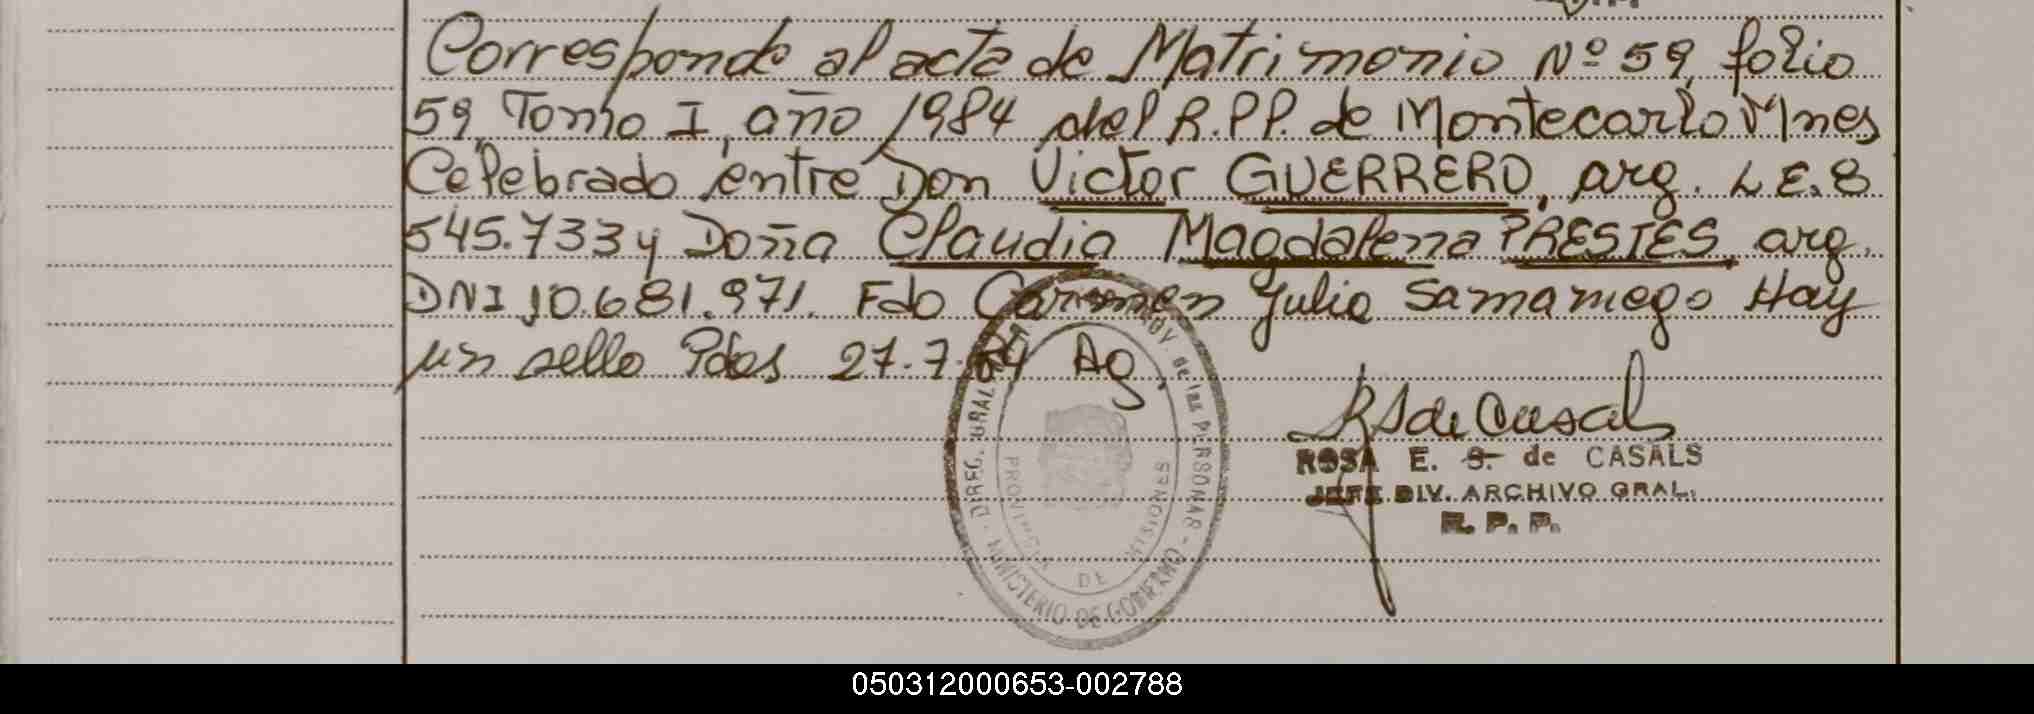 Corresponde al acta de Matrimonio Nº 59, folio
59, Tomo I, año 1984 del R.P.P. de Montecarlo Mnes
Celebrado entre Don Victor GUERRERO, arg. L.E. 8
545.733 y Doña Claudia Magdalena PRESTES arg.
DNI 10.681.971. Fdo Carmen Julia Samaniego Hay
un sello Pdas 27.7.84 Ag.
RSde Casals
ROSA E. S. de CASALS
JEFE DIV. ARCHIVO GRAL.
R. P. P.
DIREC. GRAL. de las PERSONAS - MINISTERIO DE GOBIERNO
PROVINCIA DE MISIONES
050312000653-002788